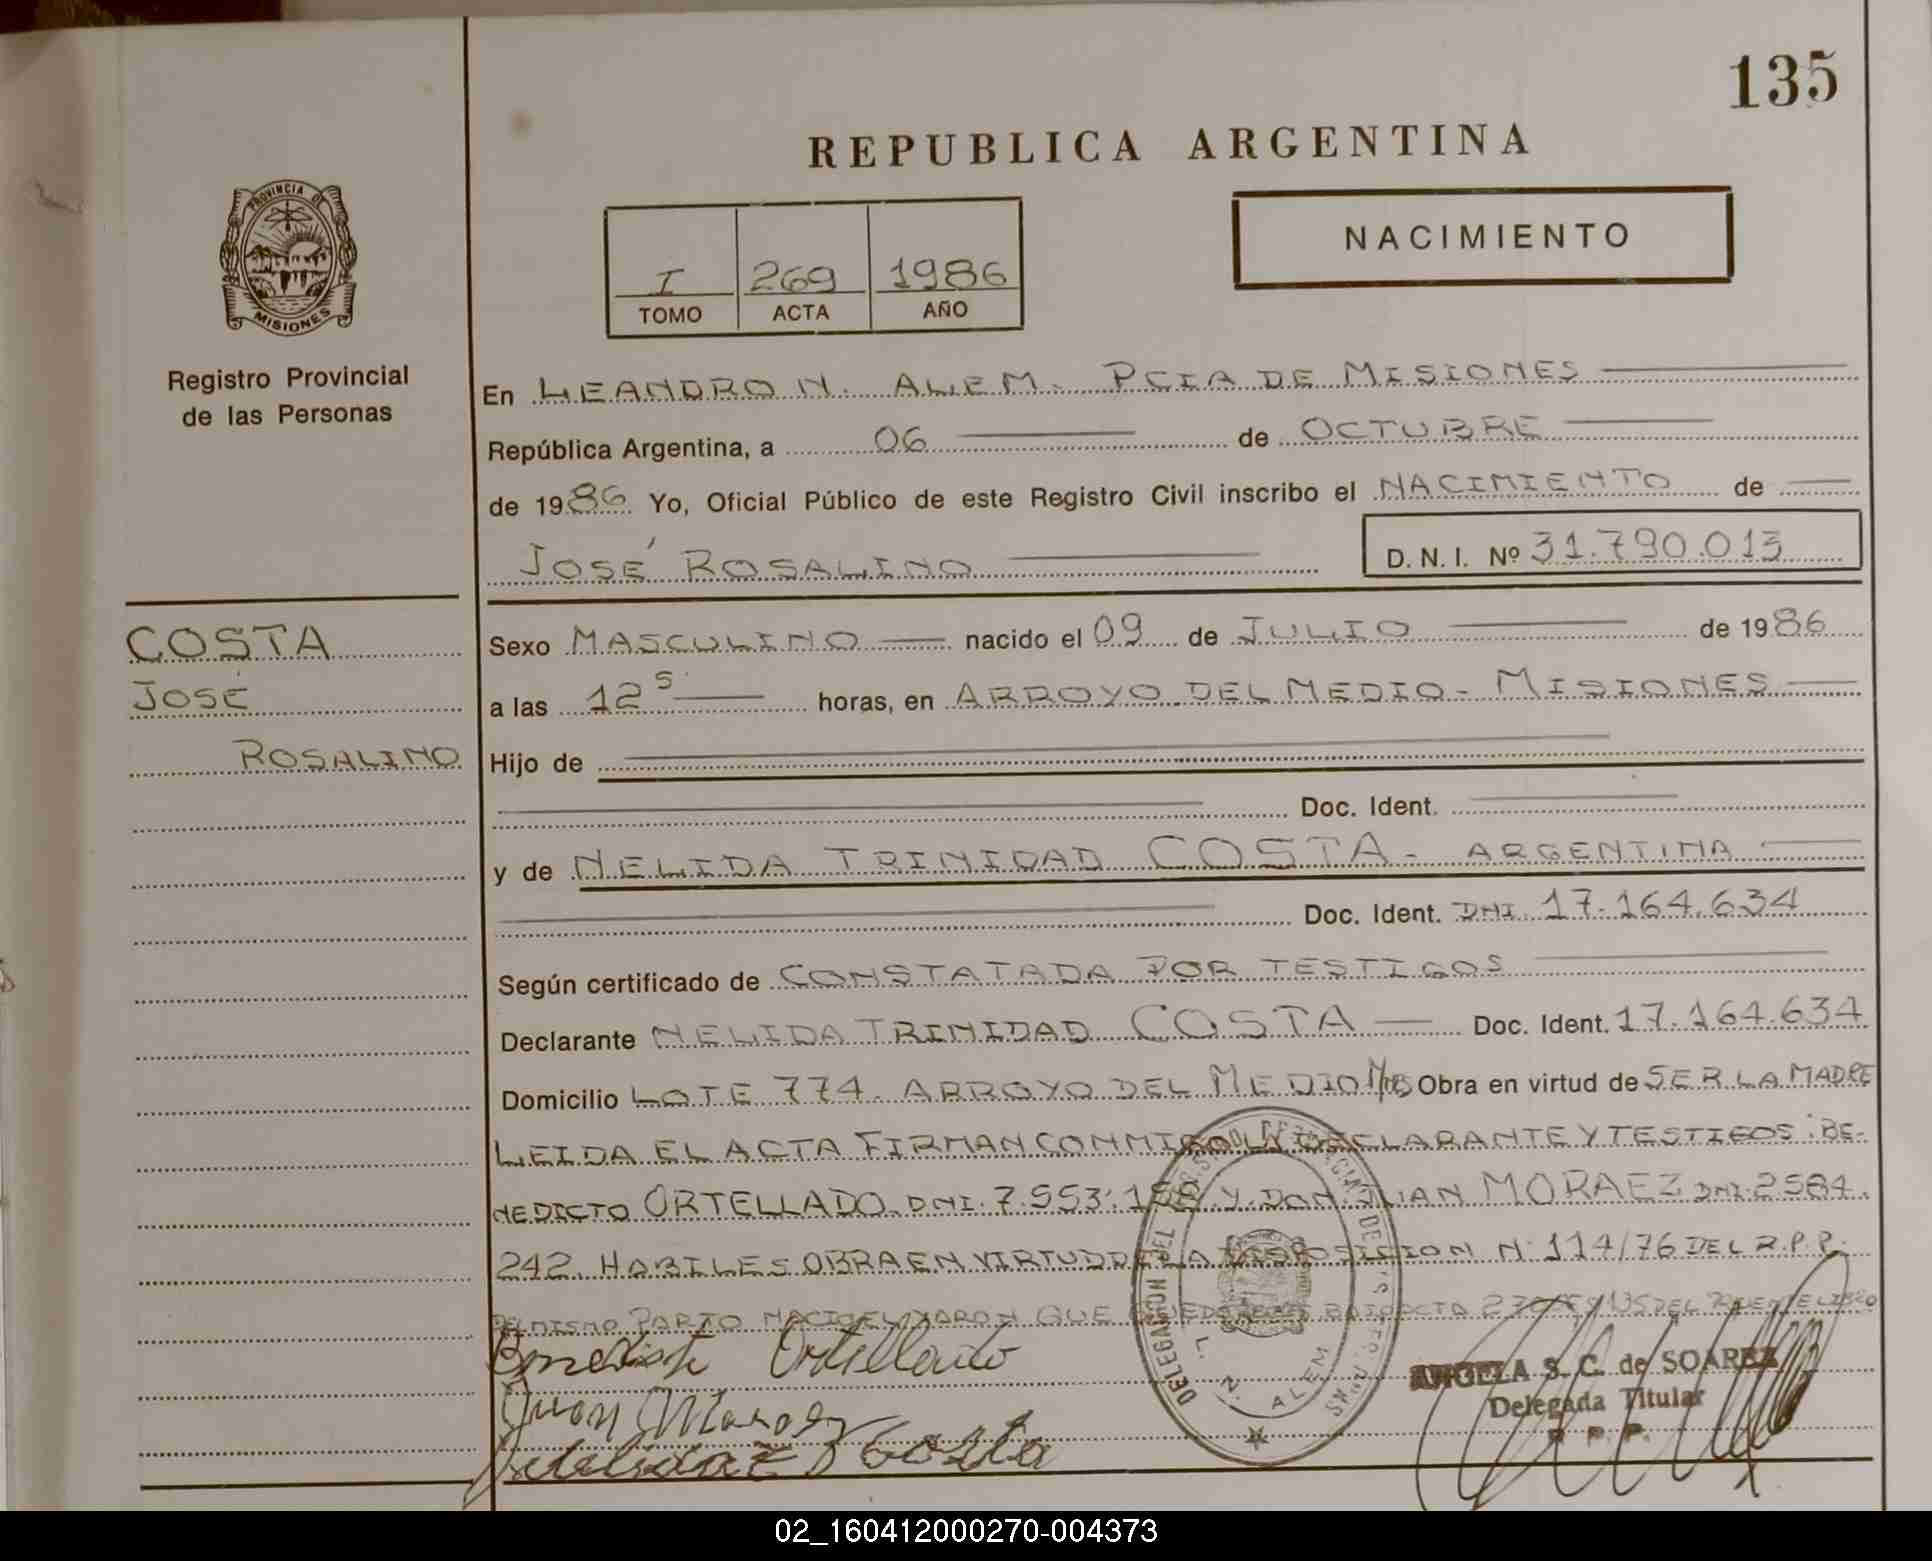 135
REPUBLICA ARGENTINA
PROVINCIA D
MISIONES
Registro Provincial
de las Personas
I 269 1986
TOMO ACTA AÑO
NACIMIENTO
En LEANDRO N. ALEM. PCIA DE MISIONES
República Argentina, a 06 de OCTUBRE
de 1986 Yo, Oficial Público de este Registro Civil inscribo el NACIMIENTO de
JOSÉ ROSALINO D. N. I. Nº 31.790.013
COSTA
JOSÉ
ROSALINO
Sexo MASCULINO nacido el 09 de JULIO de 1986
a las 12 s horas, en ARROYO DEL MEDIO - MISIONES
Hijo de
Doc. Ident.
y de NELIDA TRINIDAD COSTA - ARGENTINA
Doc. Ident. DNI 17.164.634
Según certificado de CONSTATADA POR TESTIGOS
Declarante NELIDA TRINIDAD COSTA Doc. Ident. 17.164.634
Domicilio LOTE 774. ARROYO DEL MEDIO Mnes Obra en virtud de SER LA MADRE
LEIDA EL ACTA FIRMAN CONMIGO LA DECLARANTE Y TESTIGOS: BE-
NEDICTO ORTELLADO DNI. 7.553. Y DON JUAN MORAEZ DNI. 2584.
242. HABILES OBRA EN VIRTUD DE LA DISPOSICION N 114/76 DEL R.P.P.
DEL MISMO PARTO NACIO EL VARON QUE BAJO ACTA DEL PRESENTE LIBRO
Benedicto Ortellado
Juan Moraez
Nelida T Costa
DELEGACION DEL
L. N. ALEM
ANGELA S. C. de SOAREZ
Delegada Titular
R. P. P.
02_160412000270-004373